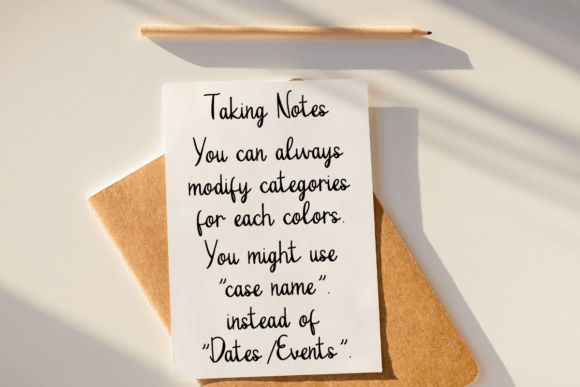 Taking Notes
You can always
modify categories
for each colors.
You might use
"case name".
instead of
"Dates/Events".